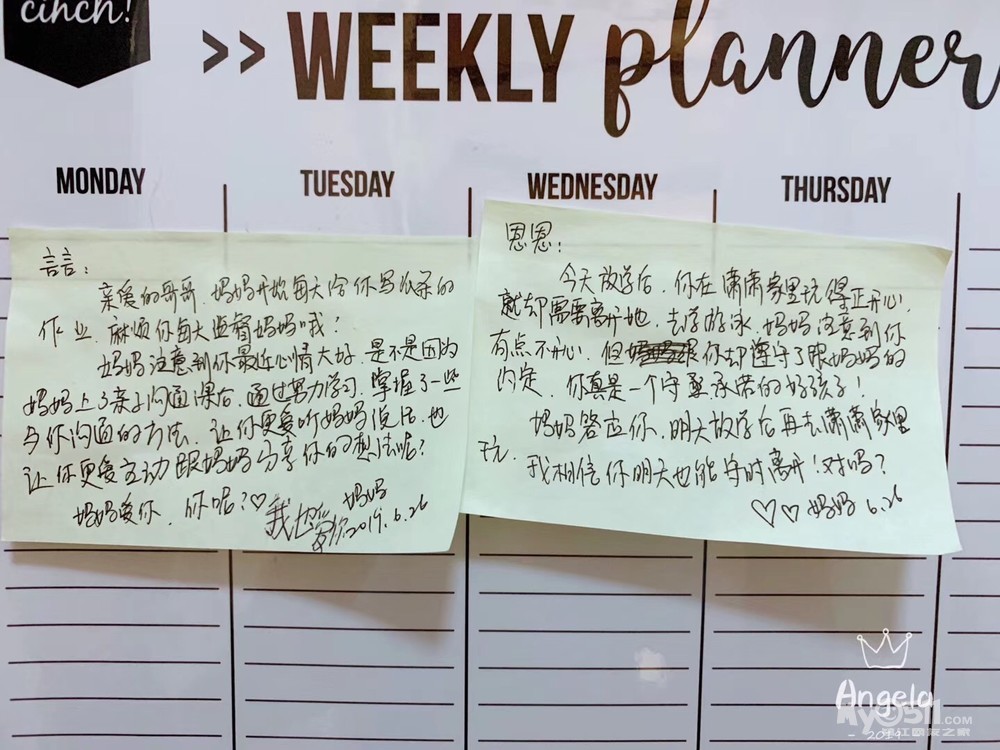 cinch!
>> WEEKLY planner
MONDAY
TUESDAY
WEDNESDAY
THURSDAY
言言：
亲爱的哥哥，妈妈开始每天给你写纸条的
作业，麻烦你每天监督妈妈哦！
妈妈注意到你最近心情大好，是不是因为
妈妈上了亲子沟通课后，通过努力学习，掌握了一些
与你沟通的方法，让你更爱听妈妈说话，也
让你更爱主动跟妈妈分享你的想法呢？
妈妈爱你，你呢？♡
妈妈
2019.6.26
我也爱你
恩恩：
今天放学后，你在潇潇家里玩得正开心，
就却需要离开她，去学游泳，妈妈注意到你
有点不开心，但你却遵守了跟妈妈的
约定，你真是一个守承诺的好孩子！
妈妈答应你，明天放学后再去潇潇家里
玩，
我相信你明天也能守时离开！对吗？
♡♡妈妈 6.26
Angela
- 2019 -
.COM
友之家